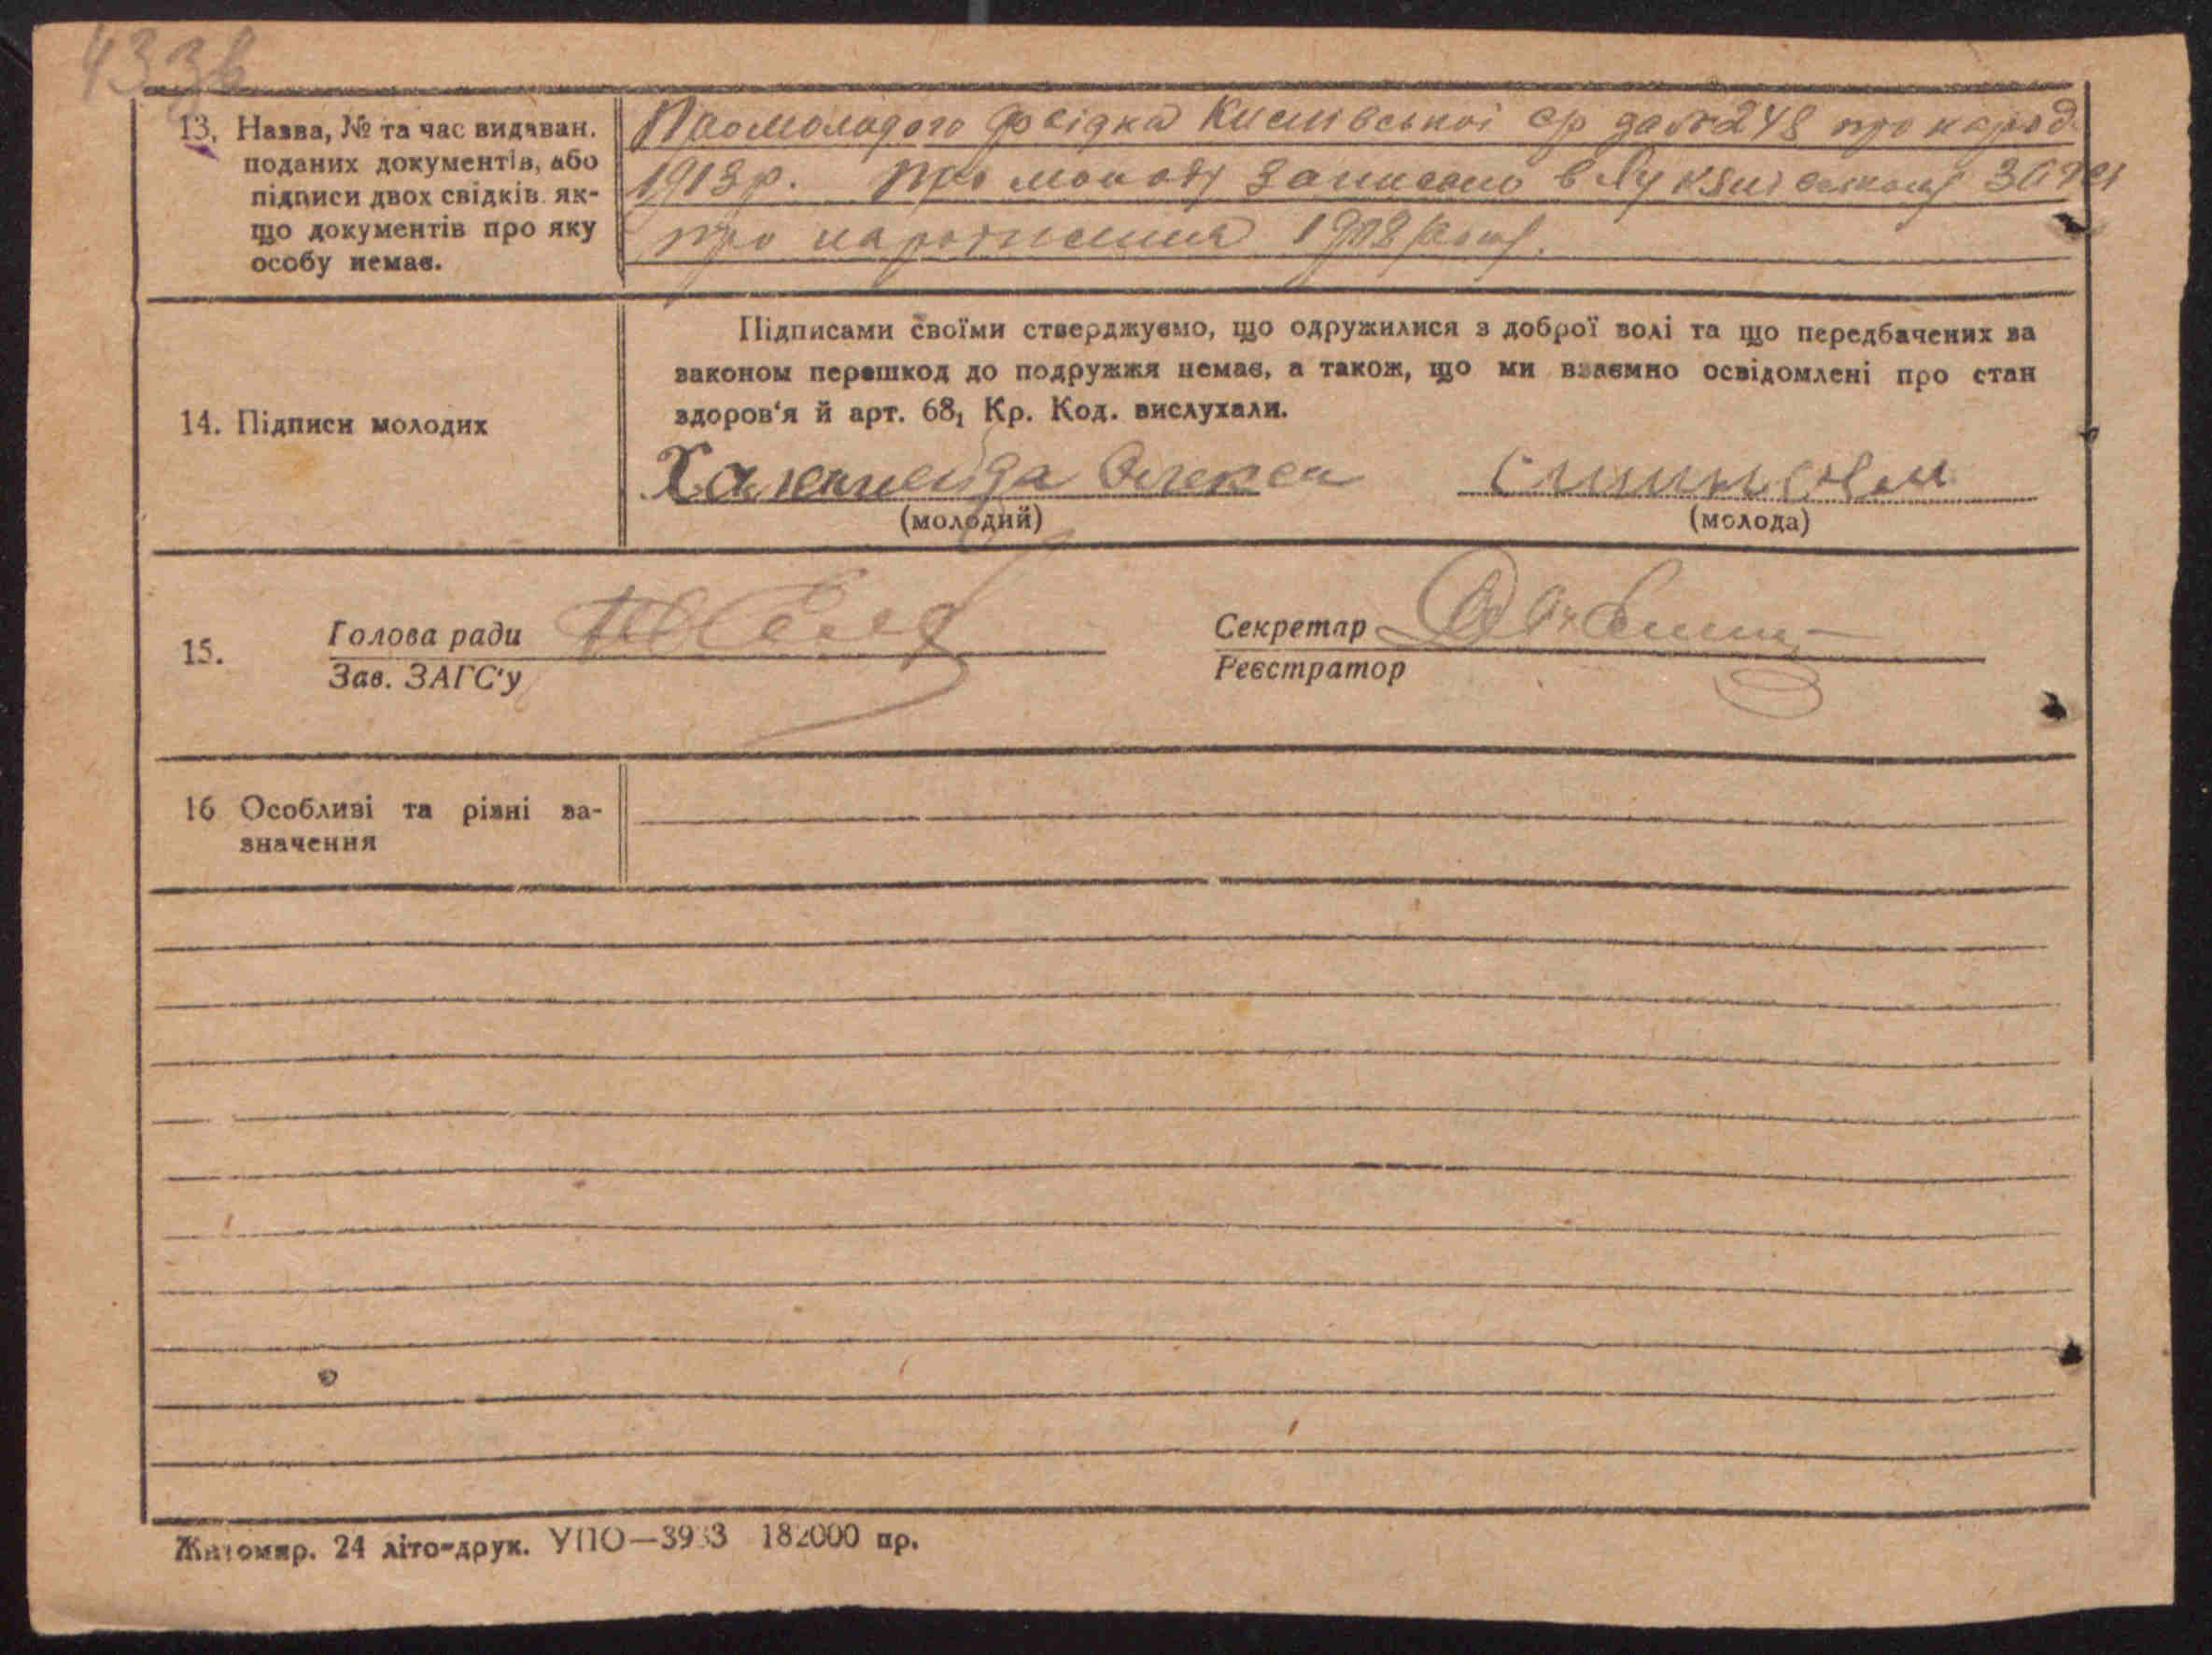 433в
13. Назва, № та час видаван.
поданих документів, або
підписи двох свідків як-
що документів про яку
особу немає.
Про молодого довідка ср за №248 про народ.
1913р. Про молоду записано в
про народження 1908 року.
14. Підписи молодих
Підписами своїми стверджуємо, що одружилися з доброї волі та що передбачених за
законом перешкод до подружжя немає, а також, що ми взаємно освідомлені про стан
здоров'я й арт. 68₁ Кр. Код. вислухали.
Олекса
(молодий)
(молода)
15.
Голова ради
Зав. ЗАГС'у
Секретар
Реєстратор
16 Особливі та різні за-
значення
Житомир. 24 літо-друк. УПО—3933 182000 пр.